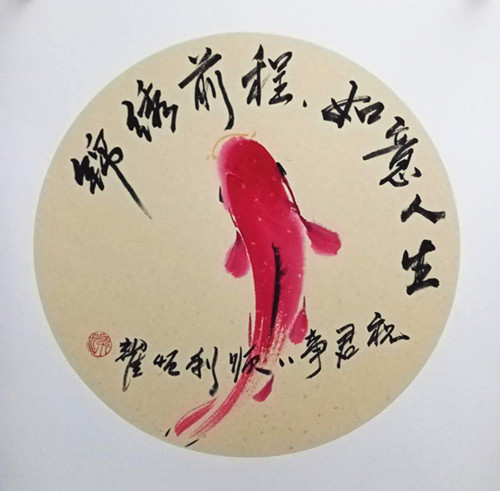 锦绣前程、如意人生
祝君事々顺利